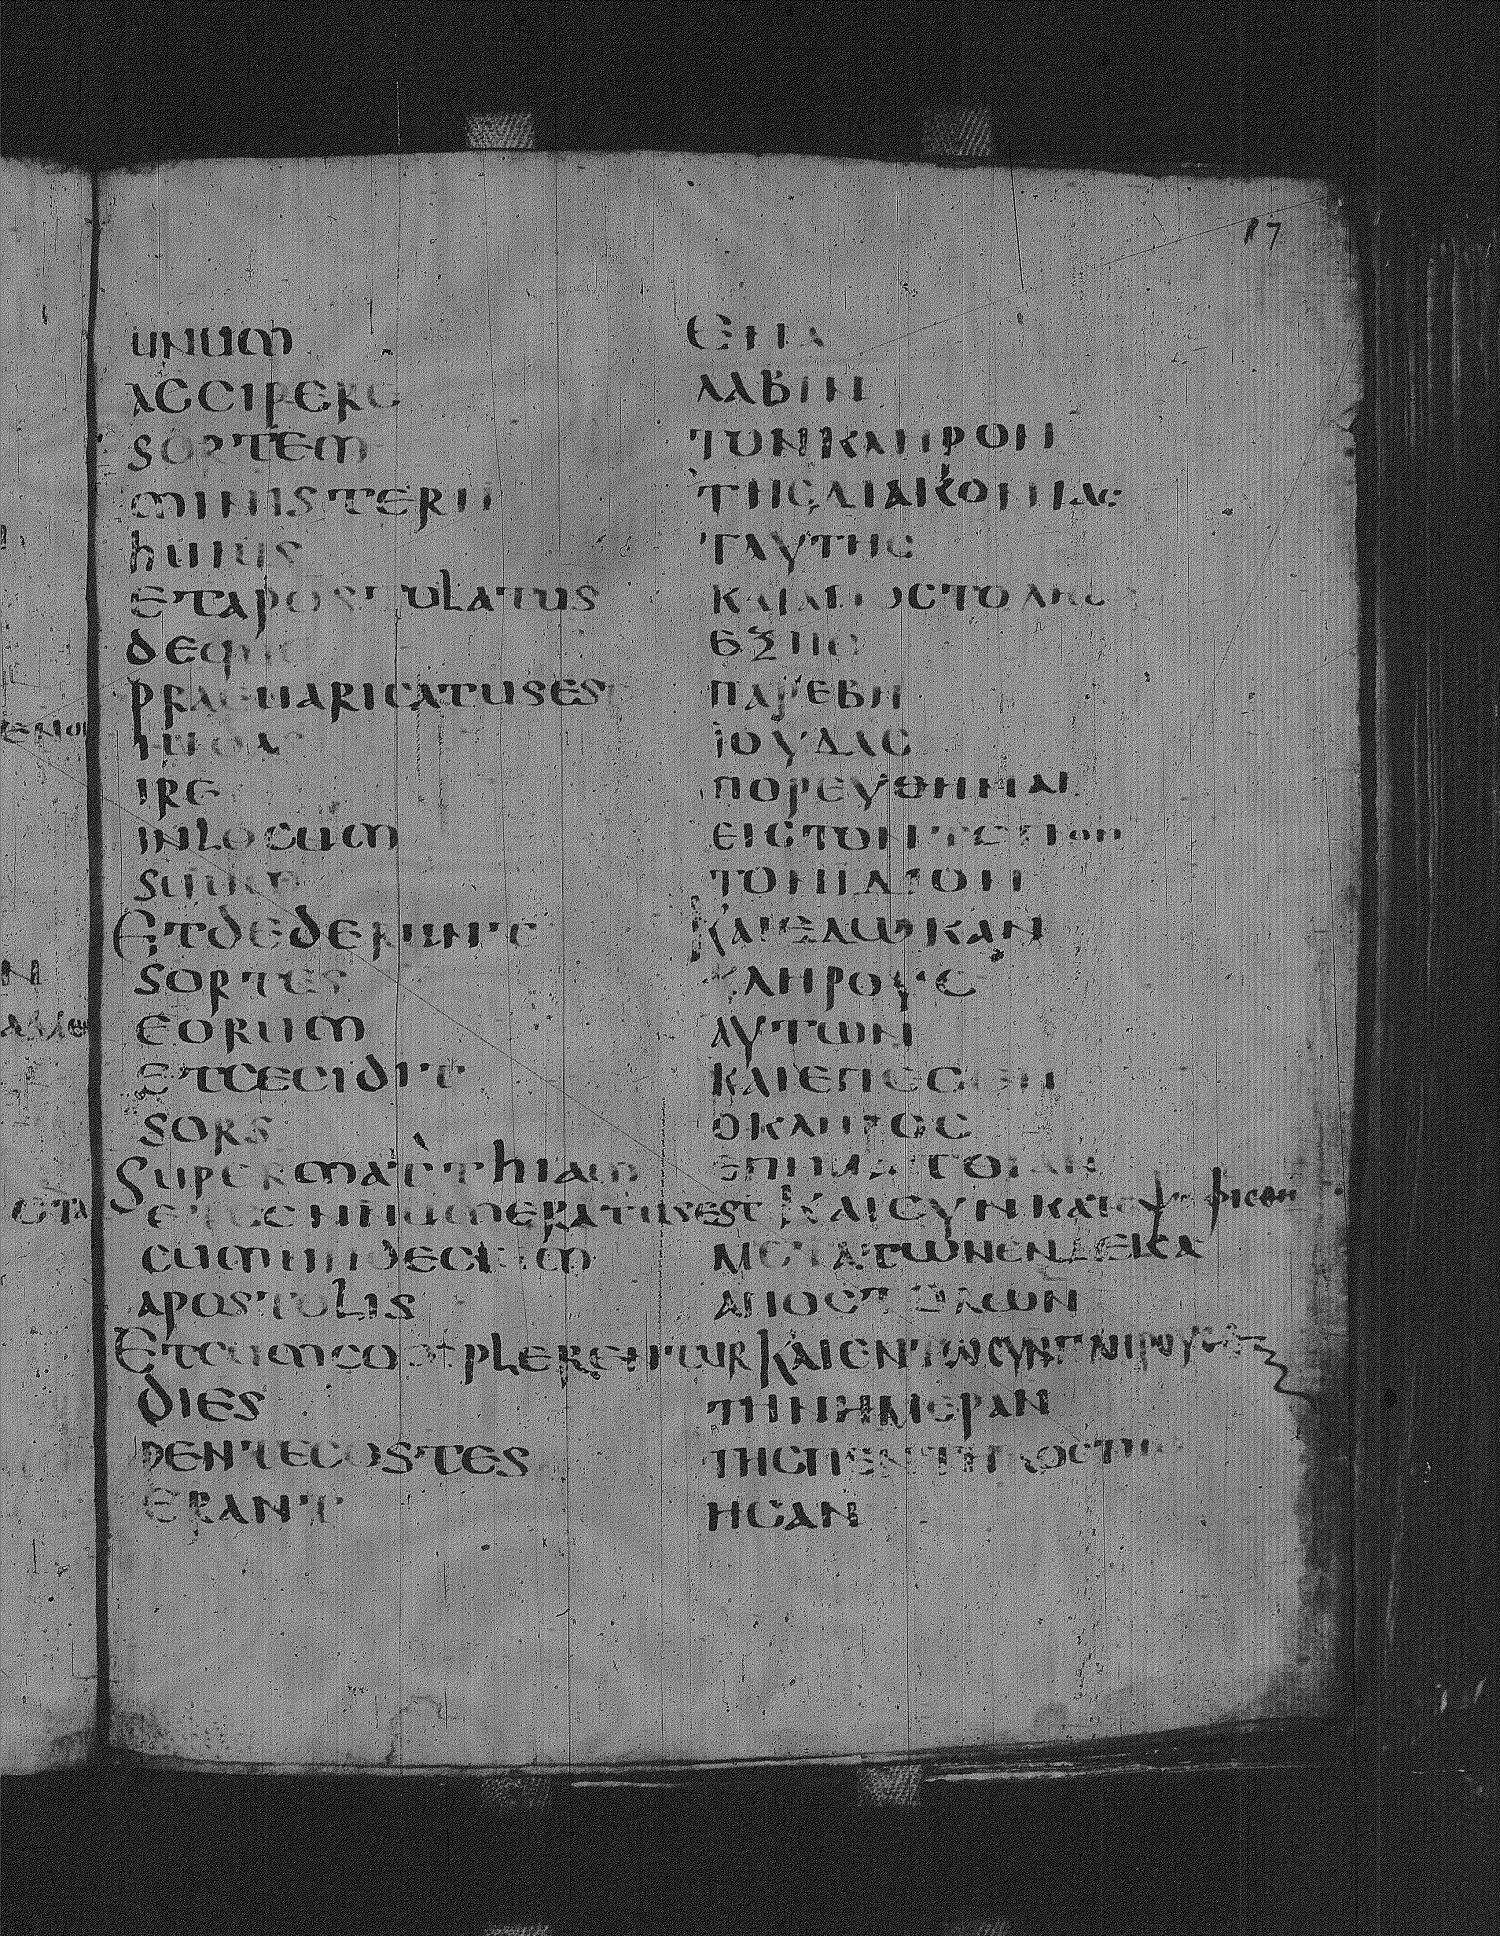 17
unum ενα
accipere λαβιν
sortem τονκληρον
ministerii τησδιακονιασ
huius ταυτησ
etapostolatus καιαποστολησ
dequo εξησ
praeuaricatusest παρεβη
iudas ϊουδασ
ire πορευθηναι
inlocum ειστοντοπον
suum τονιδιον
Etdederunt καιεδωκαν
sortes κληρουσ
eorum αυτων
etcecidit καιεπεσεν
sors οκληροσ
Supermatthiam
cumundecim μετατωνενδεκα
apostolis αποστολων
dies τηνημεραν
pentecostes τησπεντηκοστησ
erant ησαν